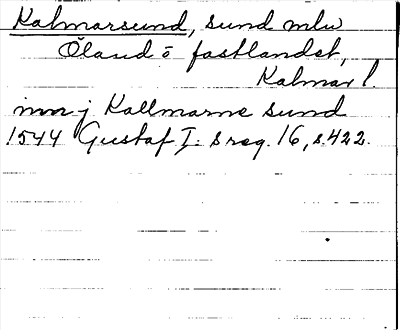 Kalmarsund, sund mlw
Öland o fastlandet,
Kalmar l.
inn j Kallmarne sund
1544 Gustaf I:s reg. 16, s. 422.